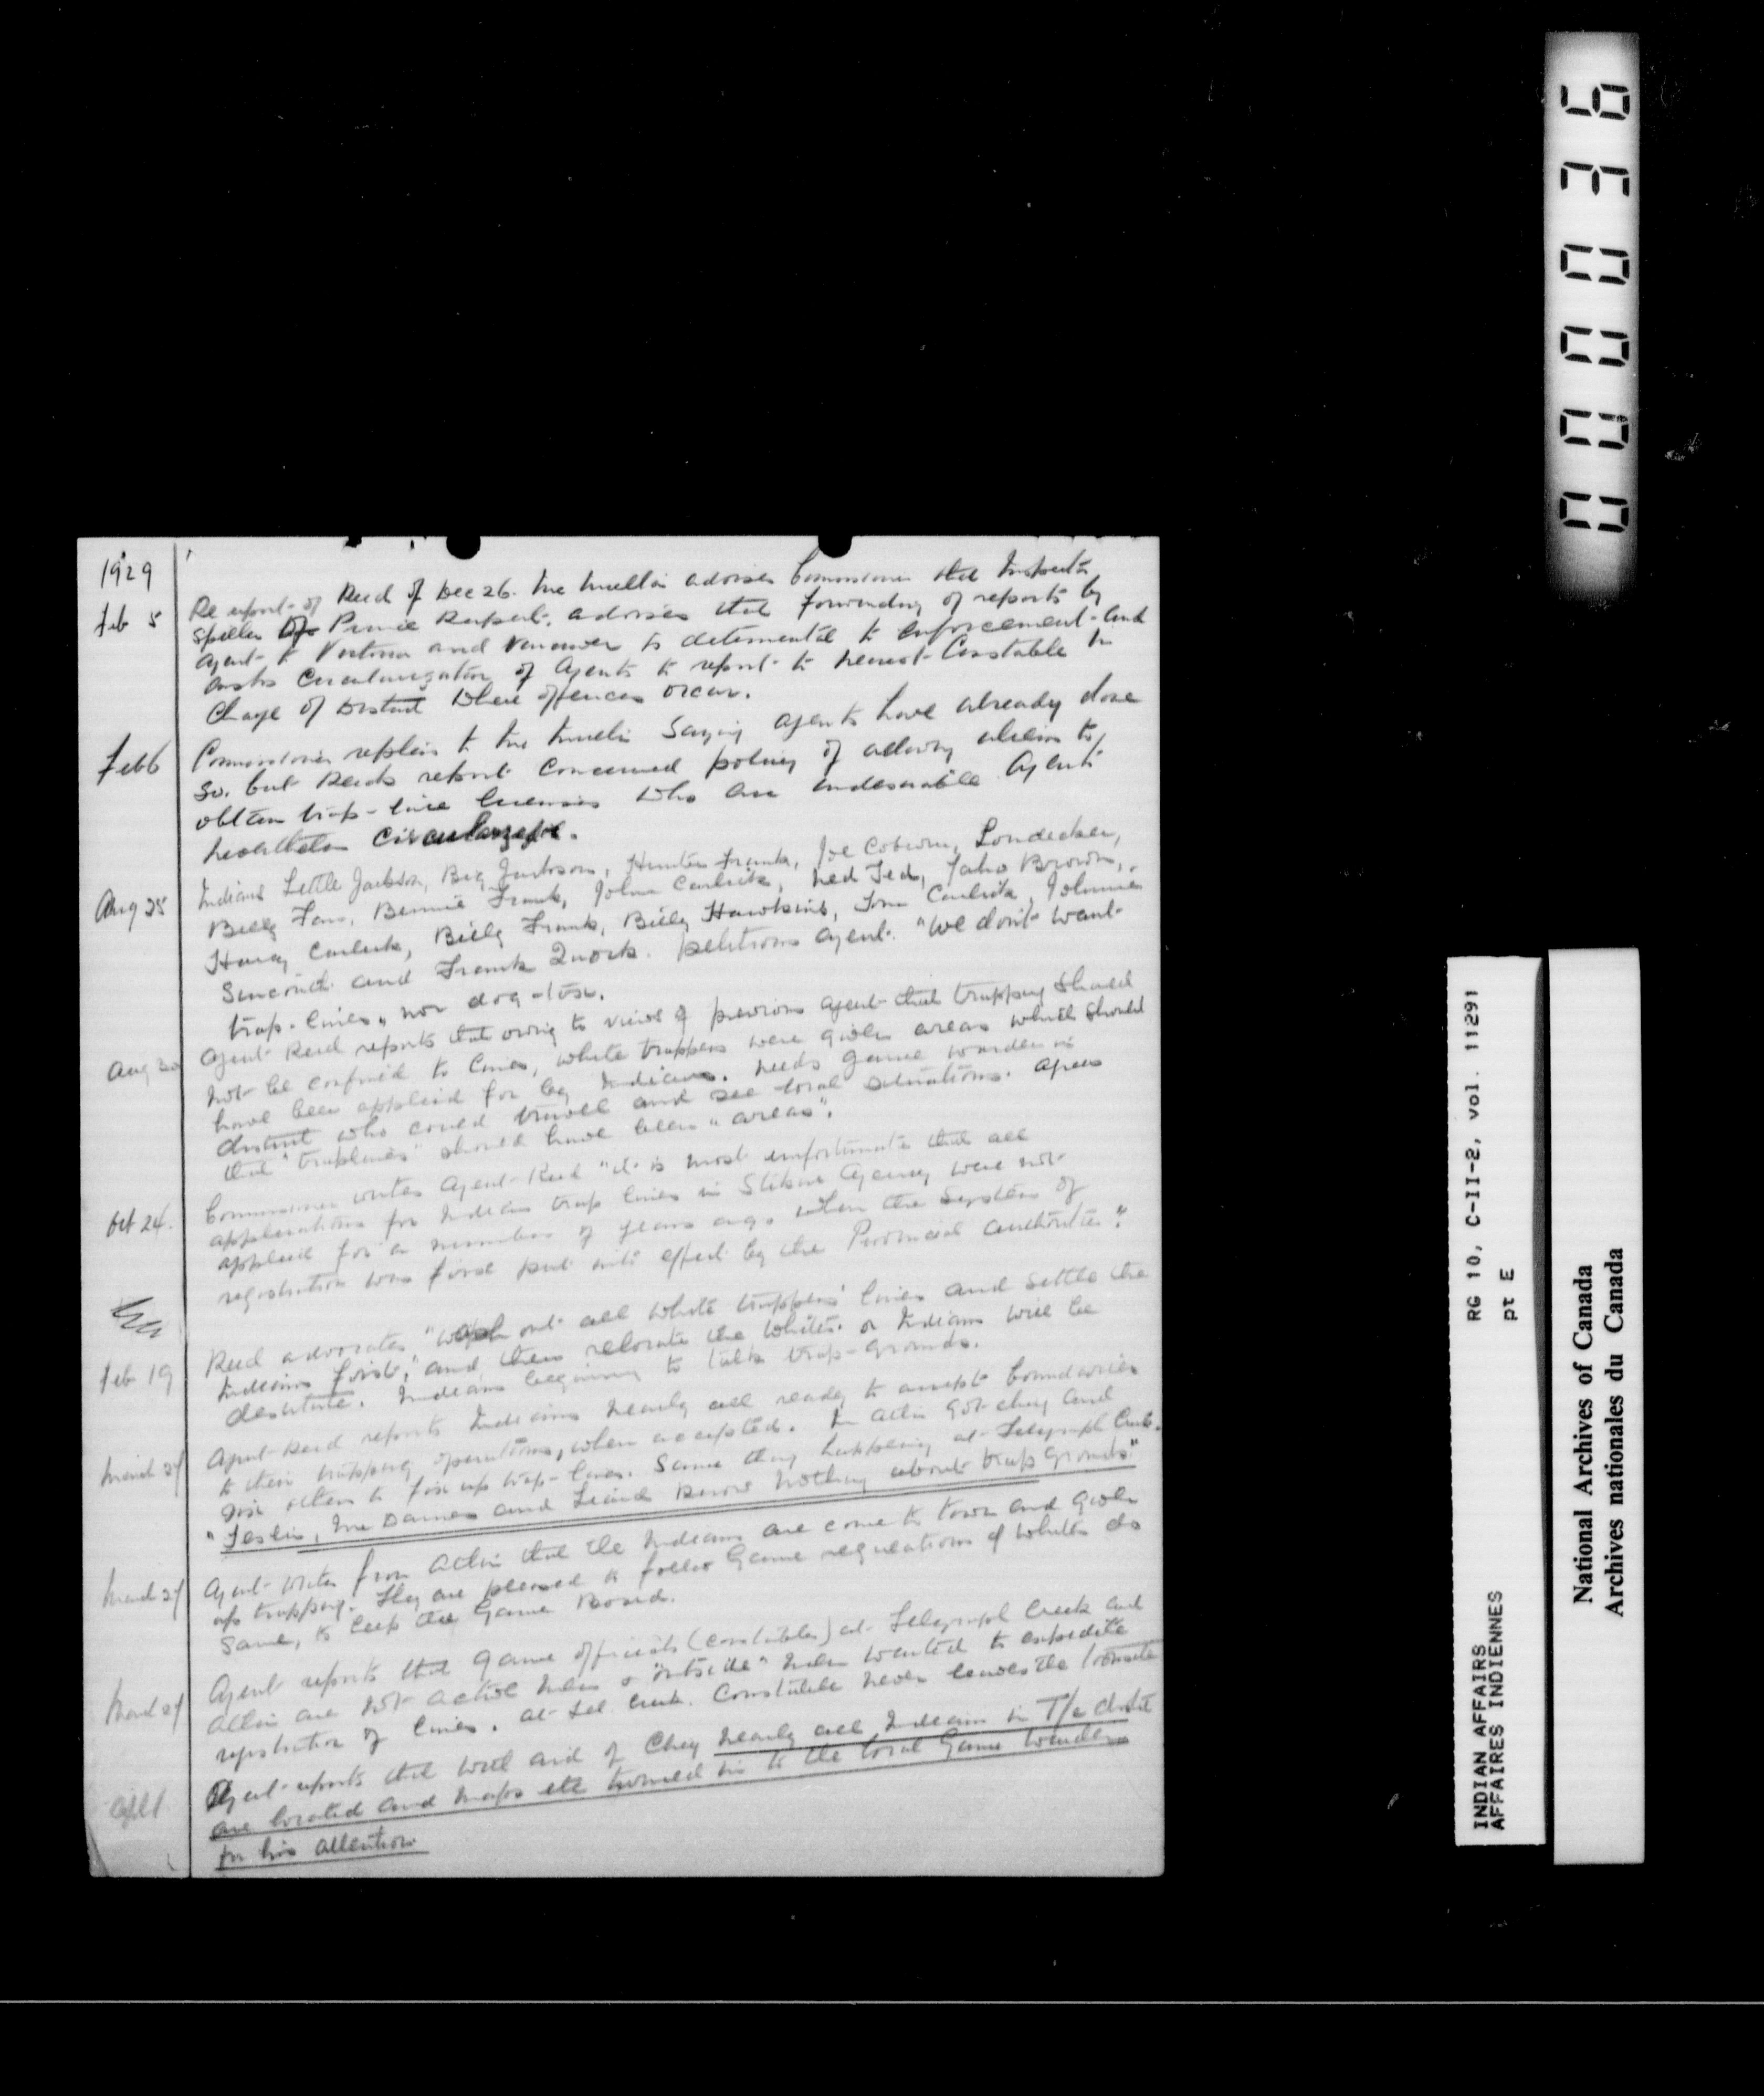 1929
Feb 5 Re report of Reid of Dec 26. McMullin advises Commissioner that Inspector
Spiller of Prince Rupert, advises that forwarding of reports by
Agent to Victoria and Vancouver is detrimental to enforcement and
asks circularization of Agents to report to nearest Constable in
Charge of District where offences occur.
Feb 6 Commissioner replies to McMullin saying agents have already done
so, but Reids report concerned policy of allowing aliens to
obtain trap-line licenses who are undesirable. Agents
nevertheless circularized.
Aug 25 Indians Little Jackson, Big Jackson, Hunter Frank, Joe Coburn, Londecker,
Billy Fan, Bennie Frank, John Carlick, Ned Ted, Taho Brown,
Harry Carlick, Billy Frank, Billy Hawkins, Tom Carlick, Johnnie
and Frank Quock. petitions Agent. "We don't want
trap-lines" nor dog-tax.
Aug 30 Agent Reid reports that owing to views of previous agent that trapping should
not be confined to lines, white trappers were given areas which should
have been applied for by Indians. Needs game warden in
district who could travel and see local situations. Agrees
that "traplines" should have been "areas".
Oct 24. Commissioner writes Agent Reid "it is most unfortunate that all
applications for Indian trap lines in Stikine Agency were not
applied for a number of years ago when the system of
registration was first put into effect by the Provincial authorities".
Feb 19 Reid advocates, "wash out all white trappers' lines and settle the
Indians first," and then relocate the whites or Indians will be
destitute. Indians beginning to talk trap-grounds.
March 27 Agent Reid reports Indians nearly all ready to accept boundaries
to their trapping operations, when accepted. In Atlin got Chey and
six others to fix up trap-lines. Same thing happening at Telegraph Creek.
"Teslin, McDames and Liard know nothing about trap grounds."
March 27 Agent writes from Atlin that the Indians are come to town and given
up trapping. They are pleased to follow Game regulations if whites do
same, to keep the Game Board.
March 27 Agent reports that game officials (constables) at Telegraph Creek and
Atlin are not active men & "outside" men wanted to expedite
registration of lines. At Tel. Creek. Constable never leaves the townsite
Apl 1 Agent reports that with aid of Chey nearly all Indians in T/c distct
are located and maps etc turned in to the local Game Warden
for his attention
000036
RG 10, C-II-2, vol. 11291
pt E
INDIAN AFFAIRS
AFFAIRES INDIENNES
National Archives of Canada
Archives nationales du Canada